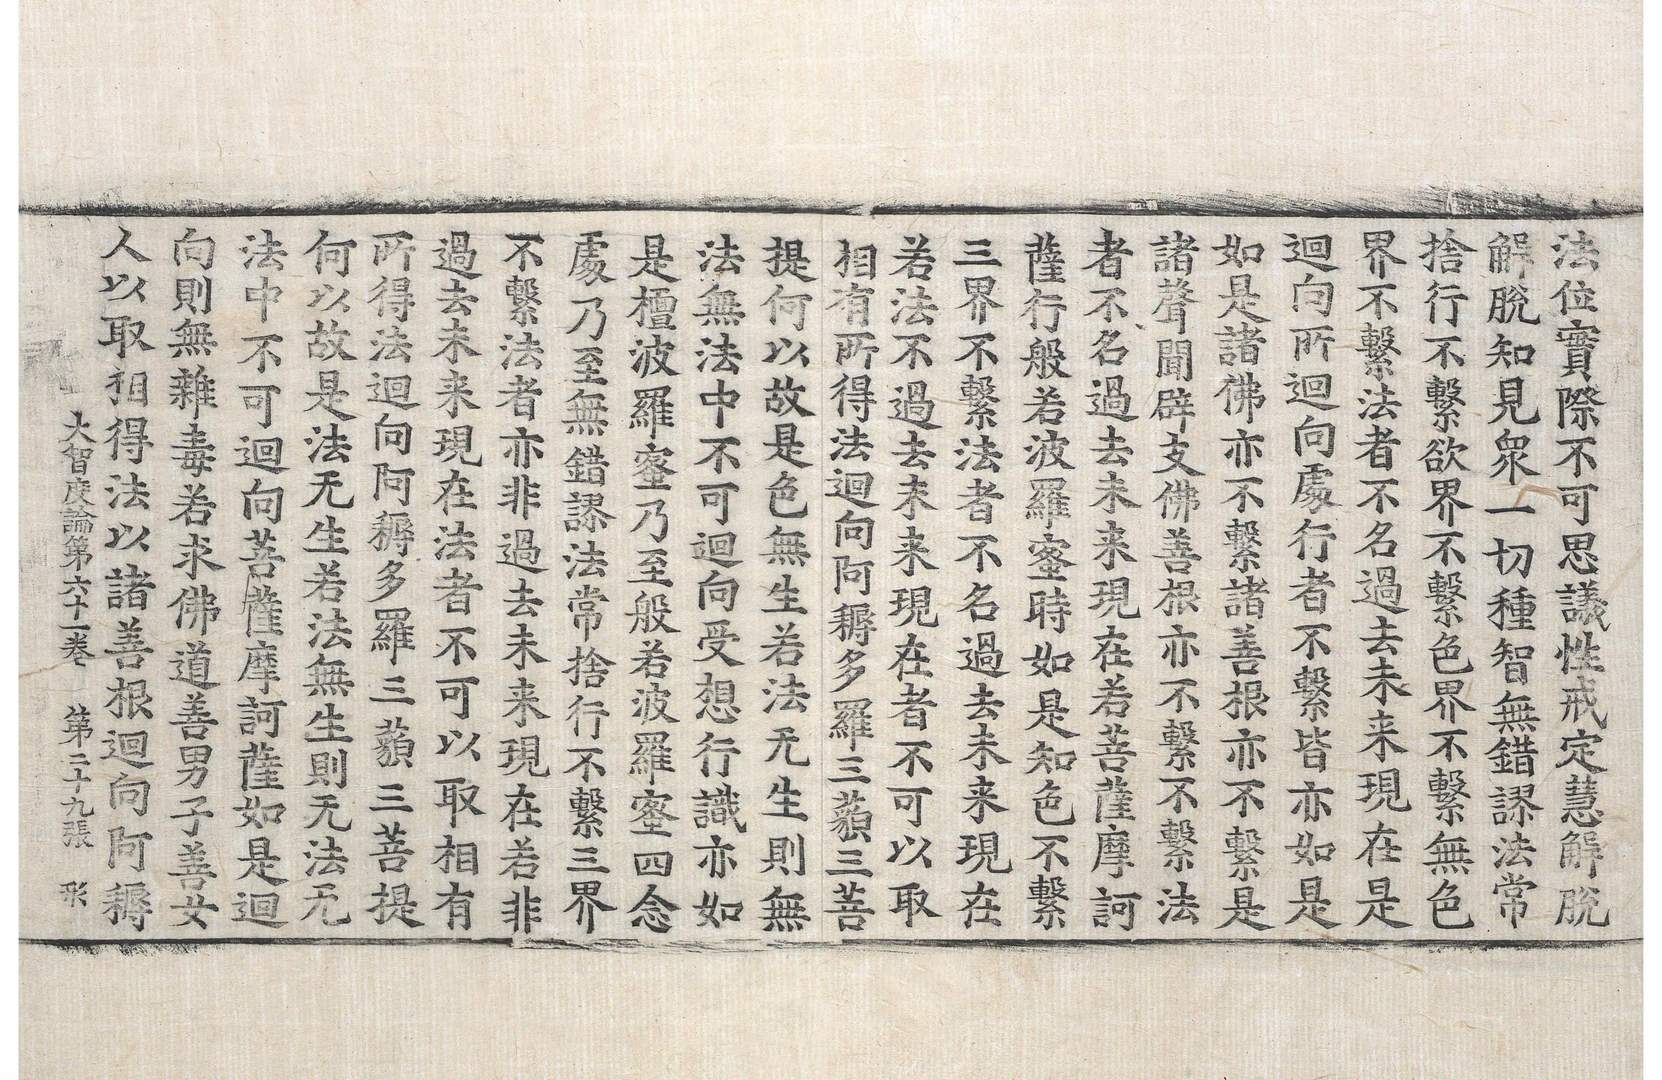 法位實際不可思議性戒定慧解脫
解脫知見衆一切種智無錯謬法常
捨行不繫欲界不繫色界不繫無色
界不繫法者不名過去未来現在是
迴向所迴向處行者不繫皆亦如是
如是諸佛亦不繫諸善根亦不繫是
諸聲聞辟支佛善根亦不繫不繫法
者不名過去未来現在若菩薩摩訶
薩行般若波羅蜜時如是知色不繫
三界不繫法者不名過去未来現在
若法不過去未来現在者不可以取
相有所得法迴向阿耨多羅三藐三菩
提何以故是色無生若法无生則無
法無法中不可迴向受想行識亦如
是檀波羅蜜乃至般若波羅蜜四念
處乃至無錯謬法常捨行不繫三界
不繫法者亦非過去未来現在若非
過去未来現在法者不可以取相有
所得法迴向阿耨多羅三藐三菩提
何以故是法无生若法無生則无法无
法中不可迴向菩薩摩訶薩如是迴
向則無雜毒若求佛道善男子善女
人以取相得法以諸善根迴向阿耨
大智度論第六十一卷 第二十九張 彩